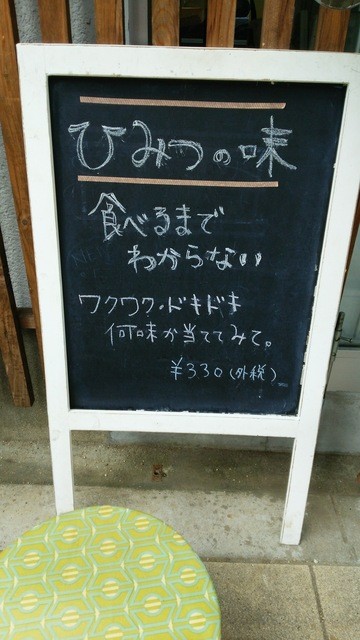 ひみつの味
食べるまで
わからない
ワクワク・ドキドキ
何味か当ててみて。
¥330(外税)